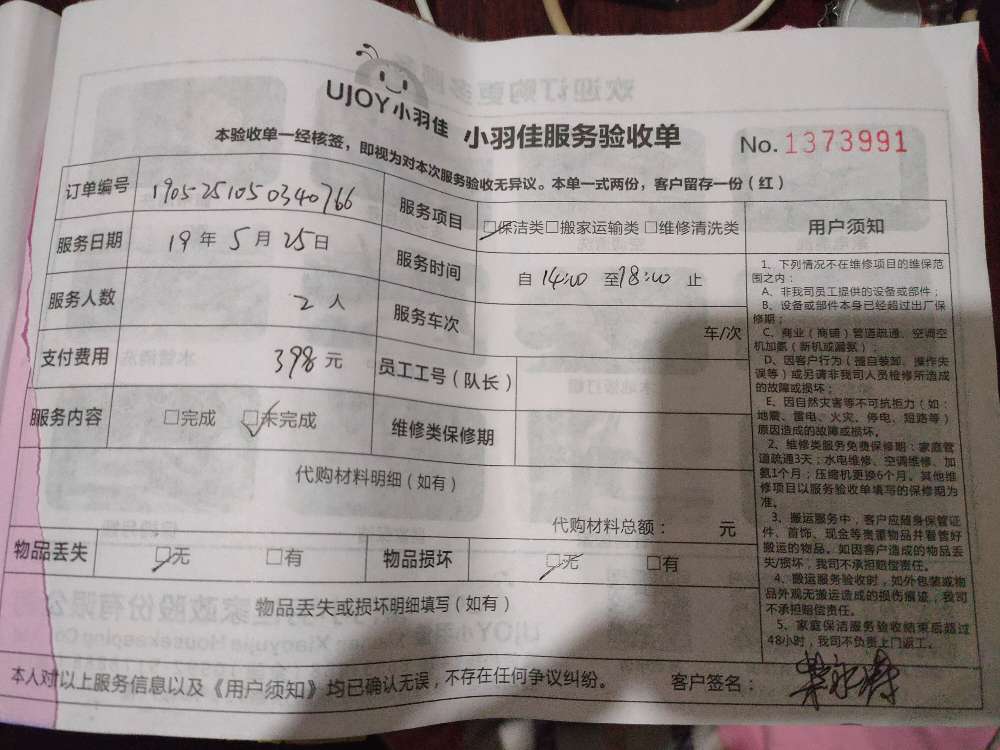 UJOY小羽佳
小羽佳服务验收单
No. 1373991
本验收单一经核签，即视为对本次服务验收无异议。本单一式两份，客户留存一份（红）
订单编号 1905251050340766 服务项目 □保洁类□搬家运输类□维修清洗类
服务日期 19年5月25日 服务时间 自14:00至18:00止
服务人数 2人 服务车次 车/次
支付费用 398元 员工工号（队长）
服务内容 □完成 □未完成 维修类保修期
代购材料明细（如有）
代购材料总额： 元
物品丢失 □无 □有 物品损坏 □无 □有
物品丢失或损坏明细填写（如有）
用户须知
1、下列情况不在维修项目的维保范
围之内：
A、非我司员工提供的设备或部件；
B、设备或部件本身已经超过出厂保
修期；
C、商业（商铺）管道疏通、空调空
机加氨（新机或漏氨）；
D、因客户行为（擅自装卸、操作失
误等）或另请非我司人员检修所造成
的故障或损坏；
E、因自然灾害等不可抗拒力（如：
地震、雷电、火灾、停电、短路等）
原因造成的故障或损坏。
2、维修类服务免费保修期：家庭管
道疏通3天；水电维修、空调维修、加
氨1个月；压缩机更换6个月。其他维
修项目以服务验收单填写的保修期为
准。
3、搬运服务中，客户应随身保管证
件、首饰、现金等贵重物品并看管好
搬运的物品。如因客户造成的物品丢
失/损坏，我司不承担赔偿责任。
4、搬运服务验收时，如外包装或物
品外观无搬运造成的损伤痕迹，我司
不承担赔偿责任。
5、家庭保洁服务验收结束后超过
48小时，我司不负责上门返工。
本人对以上服务信息以及《用户须知》均已确认无误，不存在任何争议纠纷。 客户签名：